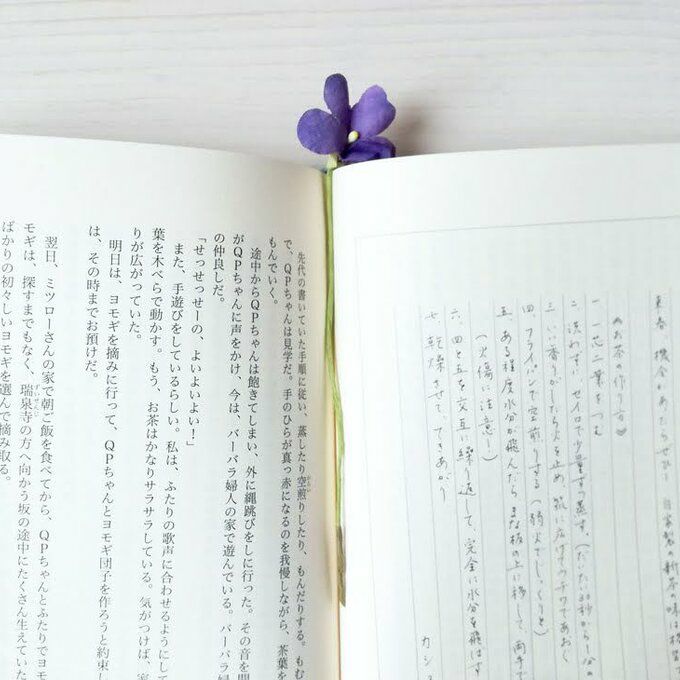 来春、機会があったらぜひ! 自家製の新茶の味は格
《お茶の作り方》
一、一芯二葉をつむ
二、洗わずに、セイロで少量ずつ蒸す。(だいたい30秒から一分
三、いい香りがしたら火を止め、紙に広げてウチワであおぐ
四、フライパンで空煎りする(弱火でじっくりと)
五、ある程度水分が飛んだら、まな板の上に移して、両手で
(火傷に注意!)
六、四と五を交互に繰り返して、完全に水分を飛ばす
七、乾燥させて、できあがり
カシ
先代の書いていた手順に従い、蒸したり空煎りしたり、もんだりする。もむ
で、QPちゃんは見学だ。手のひらが真っ赤になるのを我慢しながら、茶葉を
もんでいく。
途中からQPちゃんは飽きてしまい、外に縄跳びをしに行った。その音を聞
がQPちゃんに声をかけ、今は、バーバラ婦人の家で遊んでいる。バーバラ
の仲良しだ。
「せっせっせーの、よいよいよい!」
また、手遊びをしているらしい。私は、ふたりの歌声に合わせるようにして
葉を木べらで動かす。もう、お茶はかなりサラサラしている。気がつけば、家
りが広がっていた。
明日は、ヨモギを摘みに行って、QPちゃんとヨモギ団子を作ろうと約束し
は、その時までお預けだ。
翌日、ミツローさんの家で朝ご飯を食べてから、QPちゃんとふたりでヨモ
モギは、探すまでもなく、瑞泉寺の方へ向かう坂の途中にたくさん生えていた
ばかりの初々しいヨモギを選んで摘み取る。